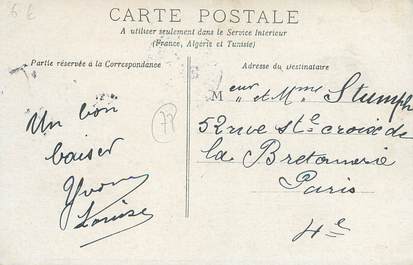 6 €
CARTE POSTALE
A utiliser seulement dans le Service Intérieur
(France, Algérie et Tunisie)
Partie réservée à la Correspondance
Adresse du Destinataire
Un bon
baiser
Yvonne
Louise
77
Meur et Mme Stumph
52 rue Ste croix de
la Bretonnerie
Paris
4e